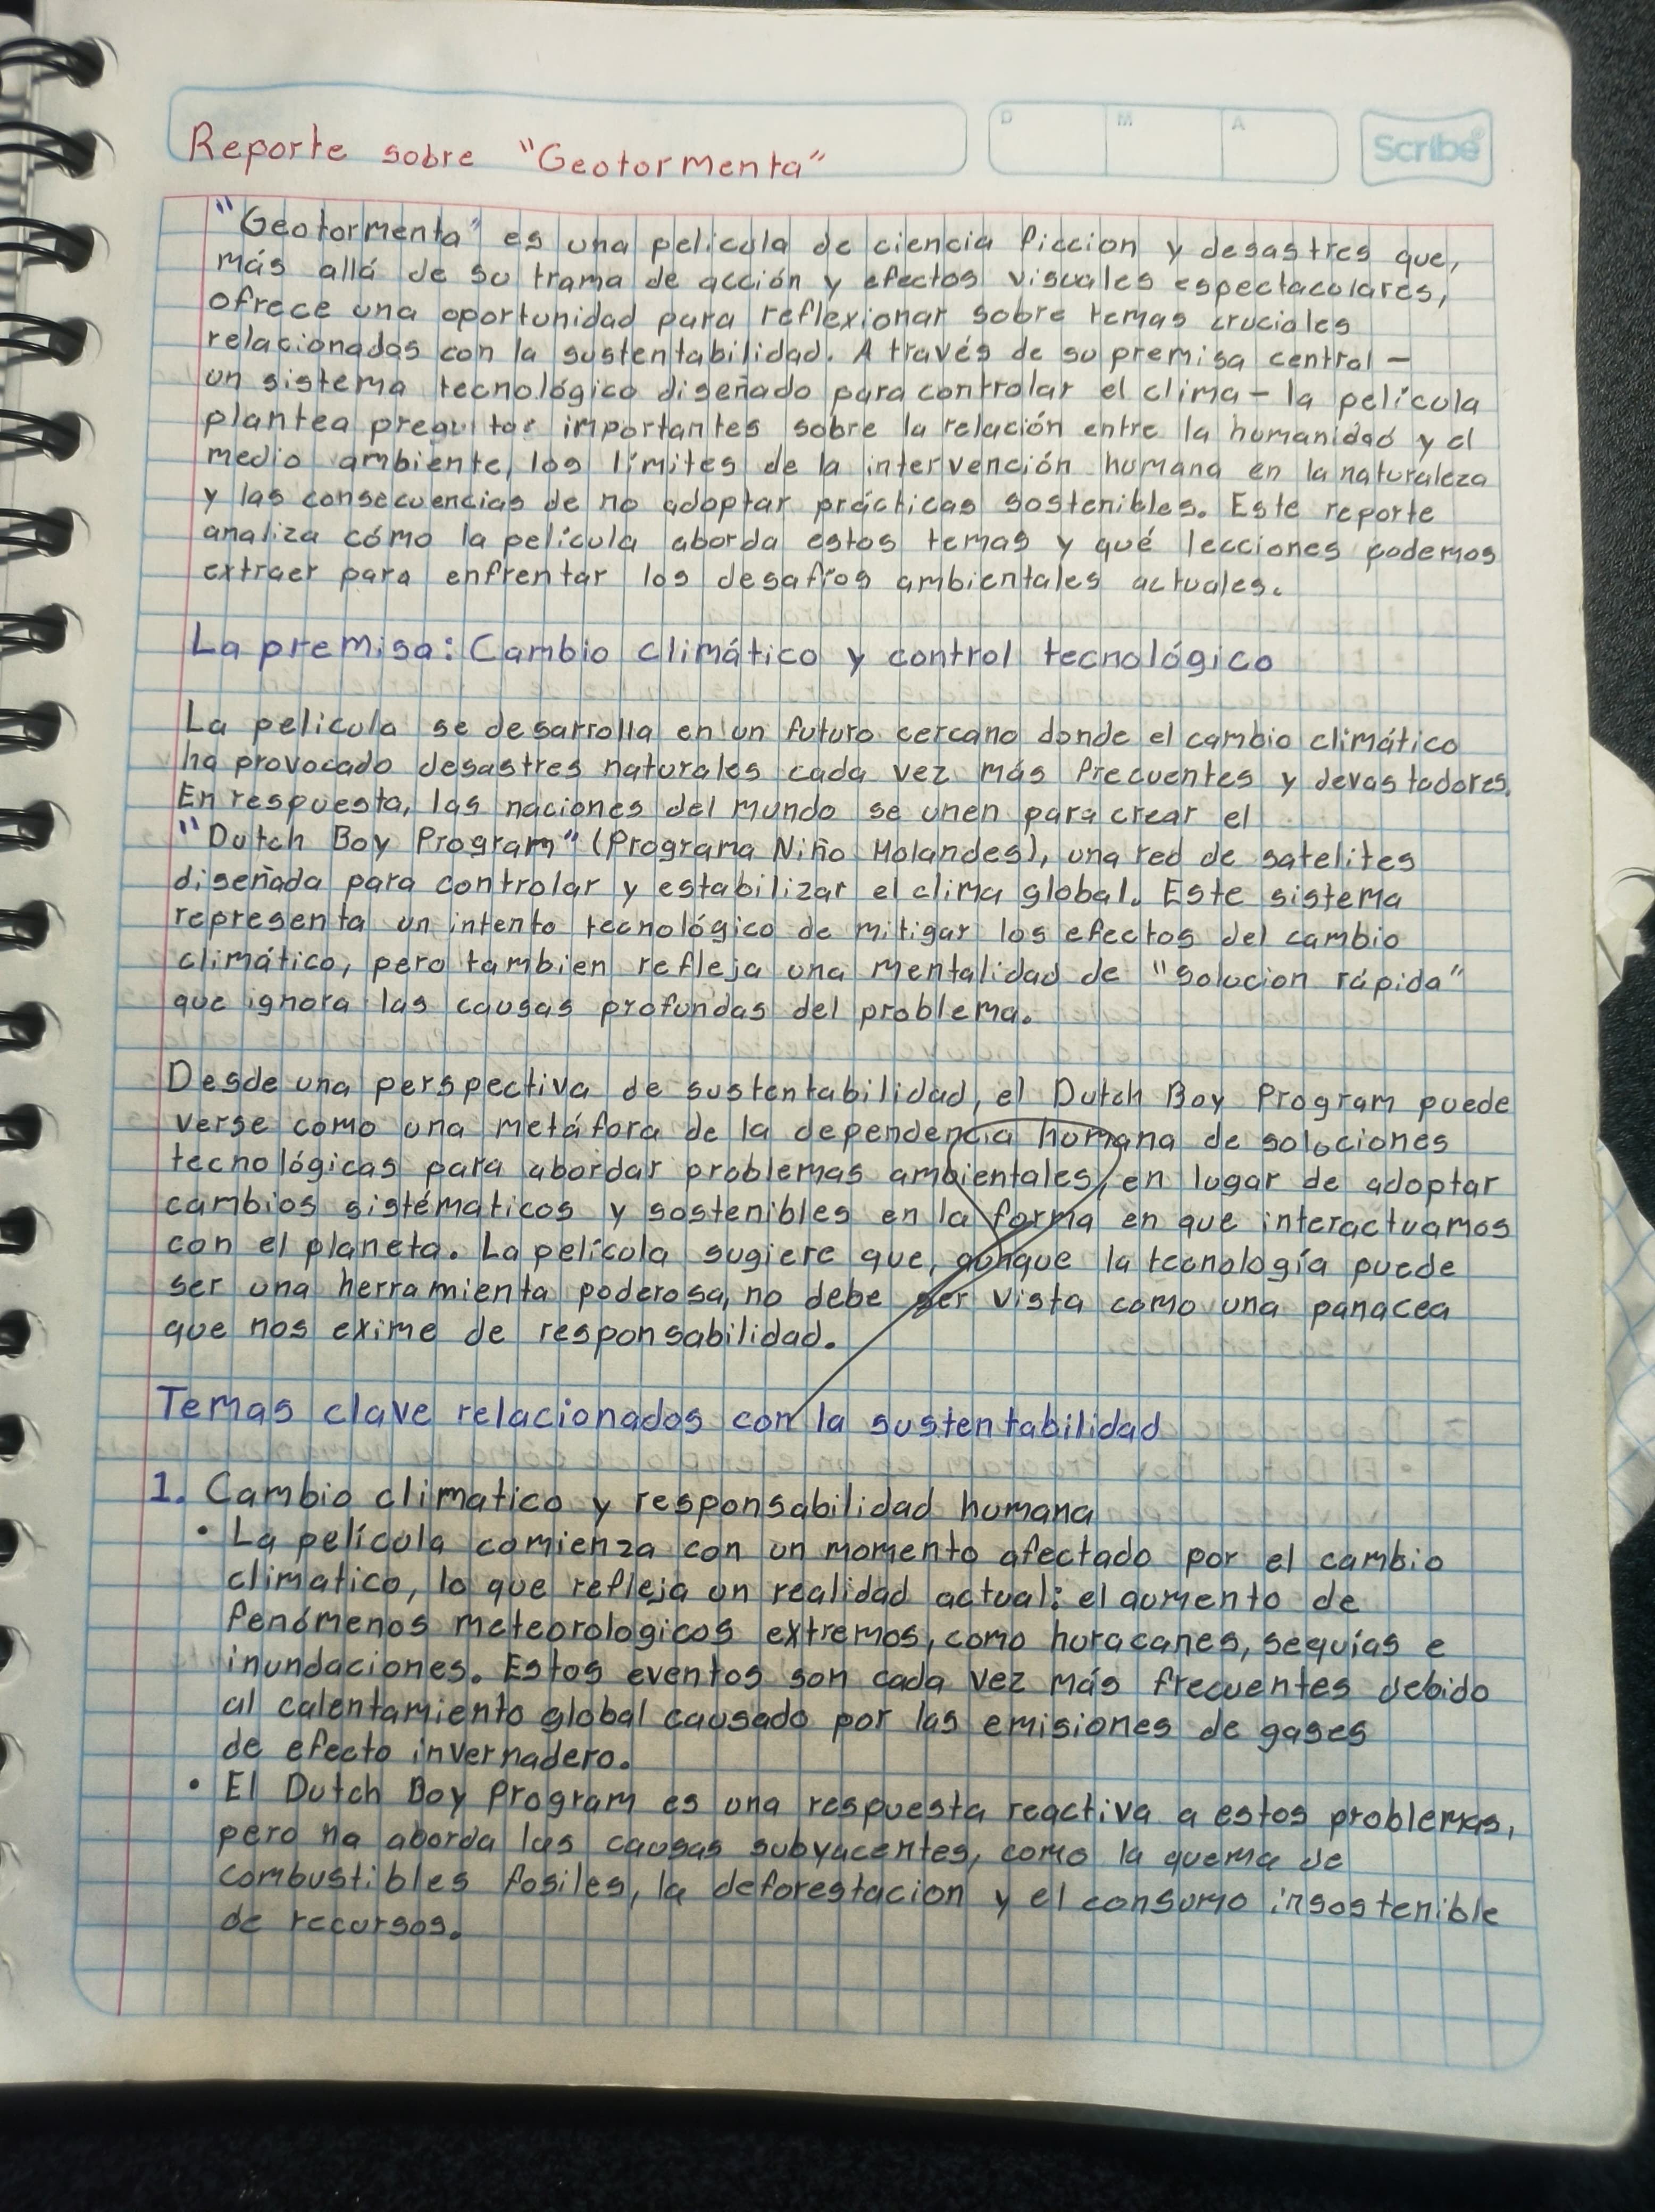 D M A
Scribe
Reporte sobre "Geotormenta"
"Geotormenta" es una pelicula de ciencia ficcion y desastres que,
más allá de su trama de acción y efectos visuales espectaculares,
ofrece una oportunidad para reflexionar sobre temas cruciales
relacionados con la sustentabilidad. A través de su premisa central -
un sistema tecnológico diseñado para controlar el clima - la película
plantea importantes sobre la relación entre la humanidad y el
medio ambiente, los límites de la intervención humana en la naturaleza
y las consecuencias de no adoptar prácticas sostenibles. Este reporte
analiza cómo la película aborda estos temas y qué lecciones podemos
extraer para enfrentar los desafíos ambientales actuales.
La premisa: Cambio climático y control tecnológico
La pelicula se desarrolla en un futuro cercano donde el cambio climático
ha provocado desastres naturales cada vez más frecuentes y devastadores.
En respuesta, las naciones del mundo se unen para crear el
"Dutch Boy Program" (Programa Niño Holandes), una red de satelites
diseñada para controlar y estabilizar el clima global. Este sistema
representa un intento tecnológico de mitigar los efectos del cambio
climático, pero tambien refleja una mentalidad de "solucion rápida"
que ignora las causas profundas del problema.
Desde una perspectiva de sustentabilidad, el Dutch Boy Program puede
verse como una metáfora de la dependencia humana de soluciones
tecnológicas para abordar problemas ambientales, en lugar de adoptar
cambios sistématicos y sostenibles en la forma en que interactuamos
con el planeta. La película sugiere que, aunque la tecnología puede
ser una herramienta poderosa, no debe ser vista como una panacea
que nos exime de responsabilidad.
Temas clave relacionados con la sustentabilidad
1. Cambio climatico y responsabilidad humana
• La película comienza con un momento afectado por el cambio
climatico, lo que refleja un realidad actual: el aumento de
fenómenos meteorologicos extremos, como huracanes, sequías e
inundaciones. Estos eventos son cada vez más frecuentes debido
al calentamiento global causado por las emisiones de gases
de efecto invernadero.
• El Dutch Boy Program es una respuesta reactiva a estos problemas,
pero na aborda las causas subyacentes, como la quema de
combustibles fosiles, la deforestacion y el consumo insostenible
de recursos.